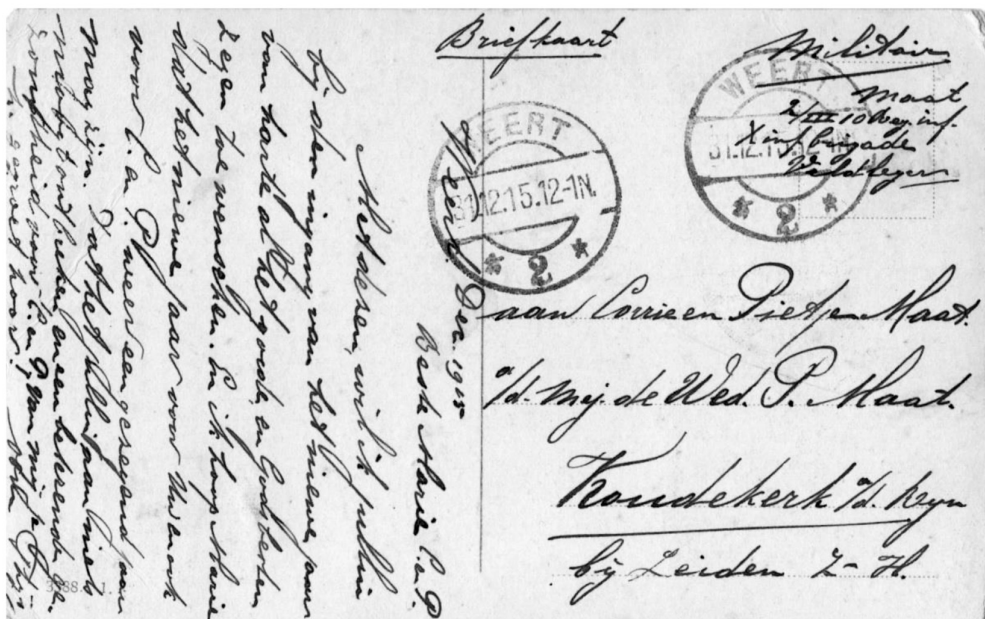 Briefkaart
Militair
Maat
2/III 10 Reg. inf.
X inf. brigade
Veldleger
WEERT
31.12.15.12-1N.
* 2 *
WEERT
31.12.15.
* 2 *
aan Corrie en Pietje Maat.
a/d. Mej. de Wed. P. Maat.
Koudekerk a/d. Rijn
bij Leiden Z-H.
Weert. Dec. 1915
Beste Marie C. en P.
Met dezen wil ik jullie
bij den ingang van het nieuwe jaar
van harte al het goede en Gods besten
zegen toewenschen. En ik hoop Marie
dat het nieuwe jaar voor U en ook
voor C. en P. weer een gezegend jaar
mag zijn. Dat het jullie aan niets
moge
en P. van mij
hoor